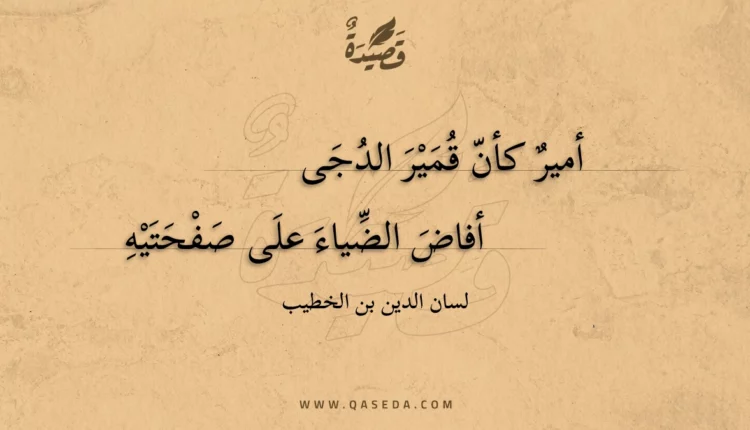 قَصِيْدَةٌ
أميرٌ كأنّ قُمَيْرَ الدُجَى
أفاضَ الضِّياءَ علَى صَفْحَتَيْهِ
لسان الدين بن الخطيب
WWW.QASEDA.COM